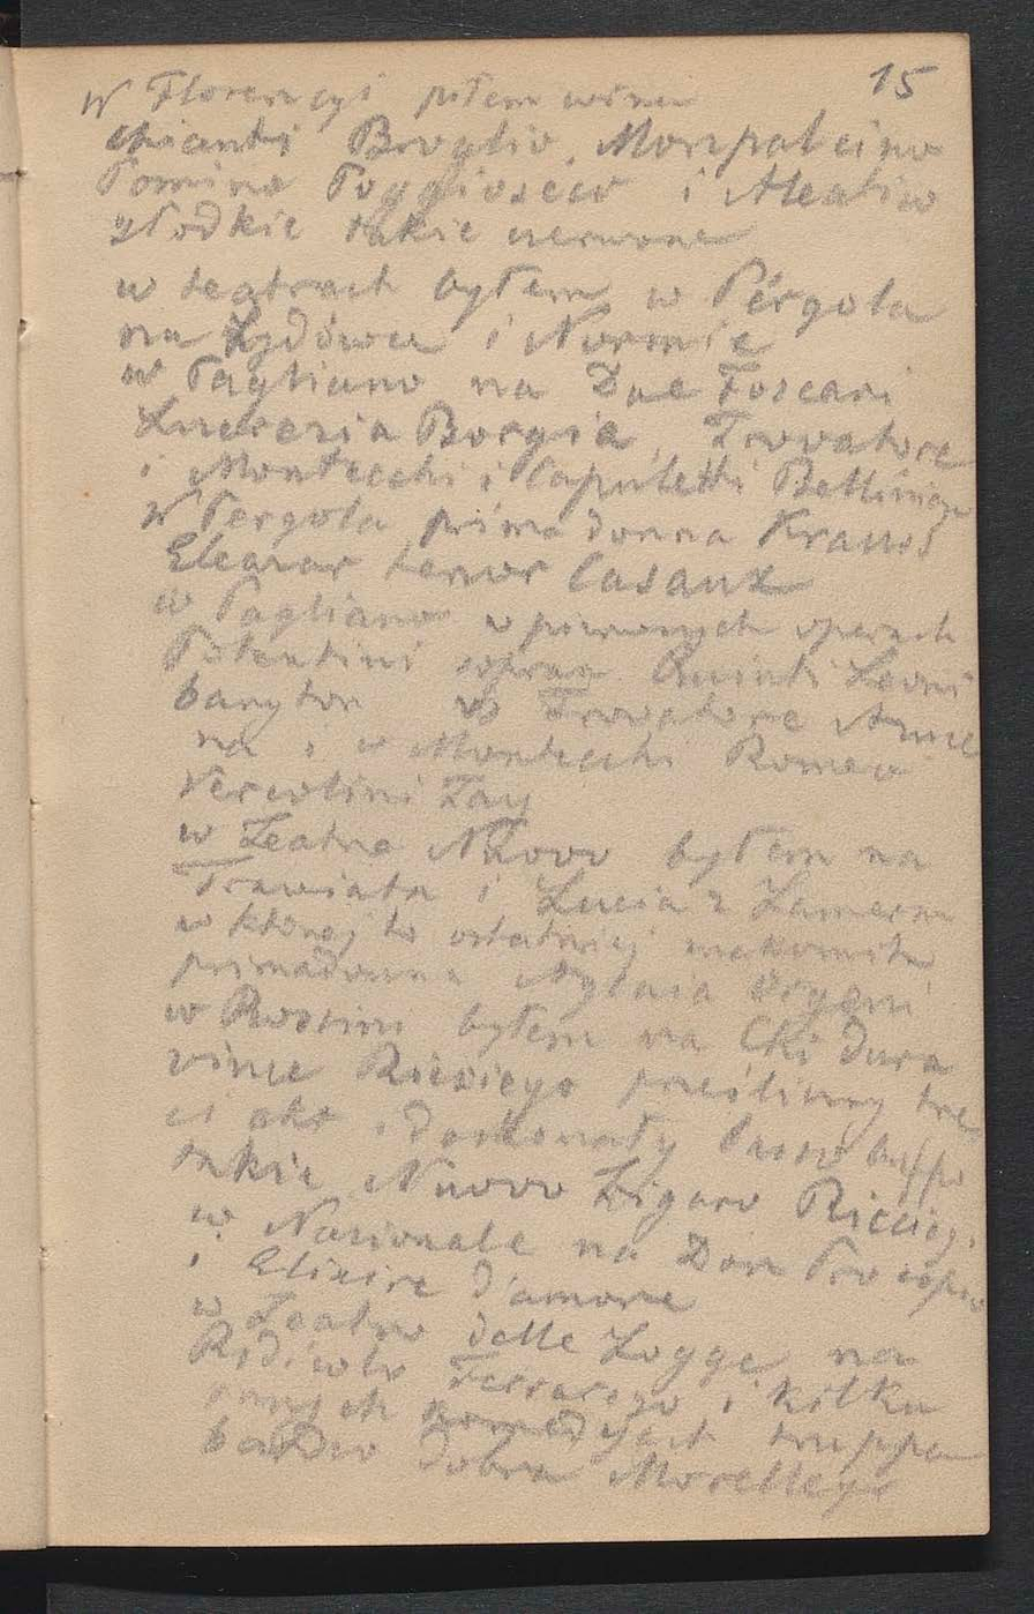 15
W Florencyi piłem wina
chianti Broglio, Monpulcino
Pomino Poggiosecco i Aleatiw
słodkie takie czerwone
w teatrach byłem w Pergola
na Żydówce i Normie
w Pagliano na Due Foscari
Lucrezia Borgia, Trovatore
i Montecchi i Capuletti Belliniego
W Pergola prima donna Krauss
Eleazar tenor Casaux
w Pagliano w pierwszych operach
Potentini sopran Quinti Leoni
baryton w Trovatore Azuce
na i w Montecchi Romeo
Zay
w Teatro Nuovo byłem na
Trawiata i Lucia z Lamerm
w której to ostatniej znakomita
primadonna Aglaia Orgeni
w Rossini byłem na Chi dura
vince Ricciego prześliczny trze
ci akt i doskonały basso buffo
także Nuovo Figaro Ricciego.
w Nazionale na Don Procopio
i Elixire d'amore
w Teatro delle Logge na
Ferrarego i kilku
innych komedyach truppa
bardzo dobra Morellego